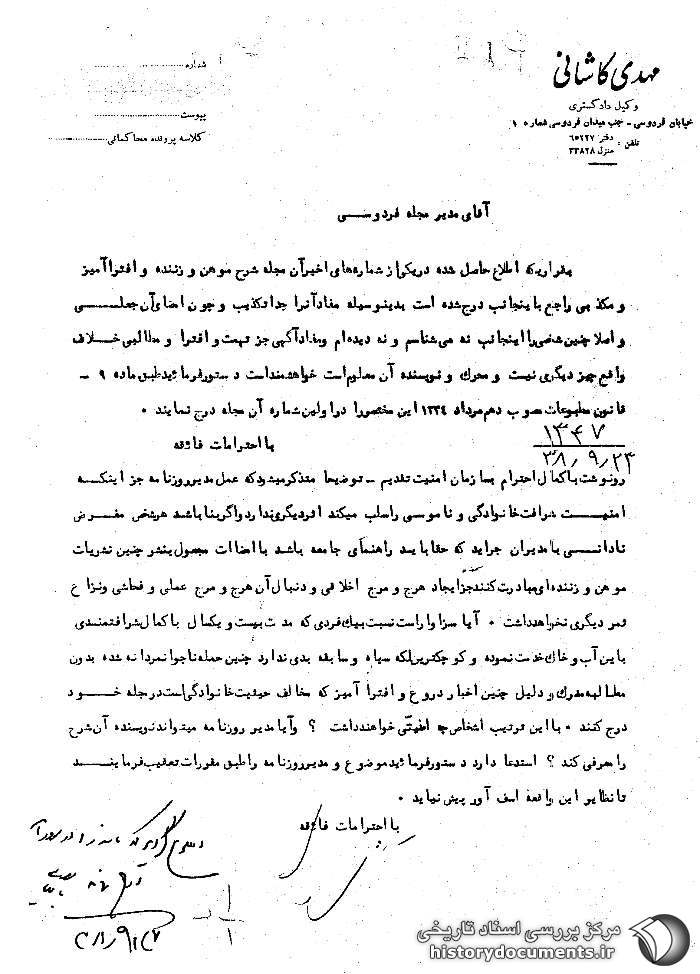 مهدی کاشانی
وکیل دادگستری
خیابان فردوسی - جنب میدان فردوسی شماره ۱
تلفن : دفتر ۶۵۲۲۷
منزل ۳۳۸۲۸
شماره
پیوست
کلاسه پرونده محاکماتی
آقای مدیر مجله فردوسی
بقراریکه اطلاع حاصل شده در یکی از شماره‌های اخیر آن مجله شرح موهن و زننده و افترا آمیز
و مکذبی راجع باینجانب درج شده است بدینوسیله مفاد آنرا جدا تکذیب و چون امضای آن جعلی
و اصلا چنین شخصی را اینجانب نه می شناسم و نه دیده ام و مفاد آگهی جز تهمت و افترا و مطالبی خلاف
واقع چیز دیگری نیست و محرک و نویسنده آن معلوم است خواهشمند است دستور فرمائید طبق ماده ۹ -
قانون مطبوعات مصوب دهم مرداد ۱۳۳۴ این مختصر را در اولین شماره آن مجله درج نمایند .
با احترامات فائقه
۱۳۴۷
۳۸/۹/۲۳
رونوشت با کمال احترام بسازمان امنیت تقدیم - توضیحا متذکر میشود که عمل مدیر روزنامه جز اینکه
امنیت شرافت خانوادگی و ناموسی را سلب میکند اثر دیگری ندارد و اگر بنا باشد هر شخص مغرض
نادانی با مدیران جراید که حقا باید راهنمای جامعه باشد با امضاات مجعول بنشر چنین نشریات
موهن و زننده ای مبادرت کنند جز ایجاد هرج و مرج اخلاقی و دنبال آن هرج و مرج عملی و فحاشی و نزاع
ثمر دیگری نخواهد داشت . آیا سزاوار است نسبت بیک فردی که مدت بیست و یکسال با کمال شرافتمندی
باین آب و خاک خدمت نموده و کوچکترین لکه سیاه و سابقه بدی ندارد چنین حمله ناجوانمردانه شده بدون
مطالبه مدرک و دلیل چنین اخبار دروغ و افترا آمیز که مخالف حیثیت خانوادگی است در مجله خود
درج کنند . با این ترتیب اشخاص چه امنیتی خواهند داشت ؟ و آیا مدیر روزنامه میتواند نویسنده آن شرح
را معرفی کند ؟ استدعا دارد دستور فرمائید موضوع و مدیر روزنامه را طبق مقررات تعقیب فرمایند
تا نظایر این واقعه اسف آور پیش نیاید .
با احترامات فائقه
مرکز بررسی اسناد تاریخی
historydocuments.ir